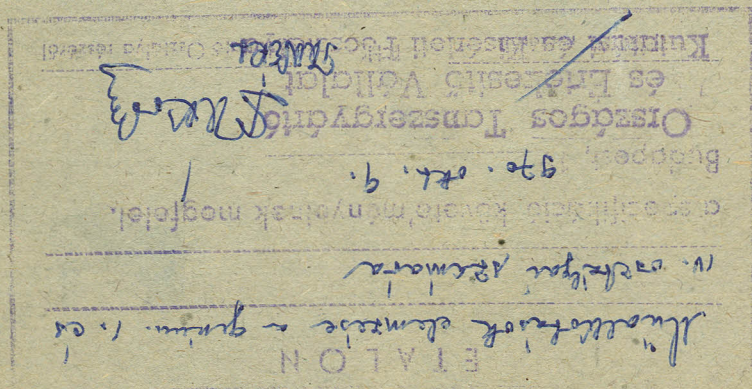 ETALON
Műalkotások elemzése a gimn. I. és
IV. osztályai számára
a specifikáció követelményeinek megfelel.
Budapest, 970. okt. 9.
Országos Tanszergyártó
és Értékesítő Vállalat
Osztálya részéről